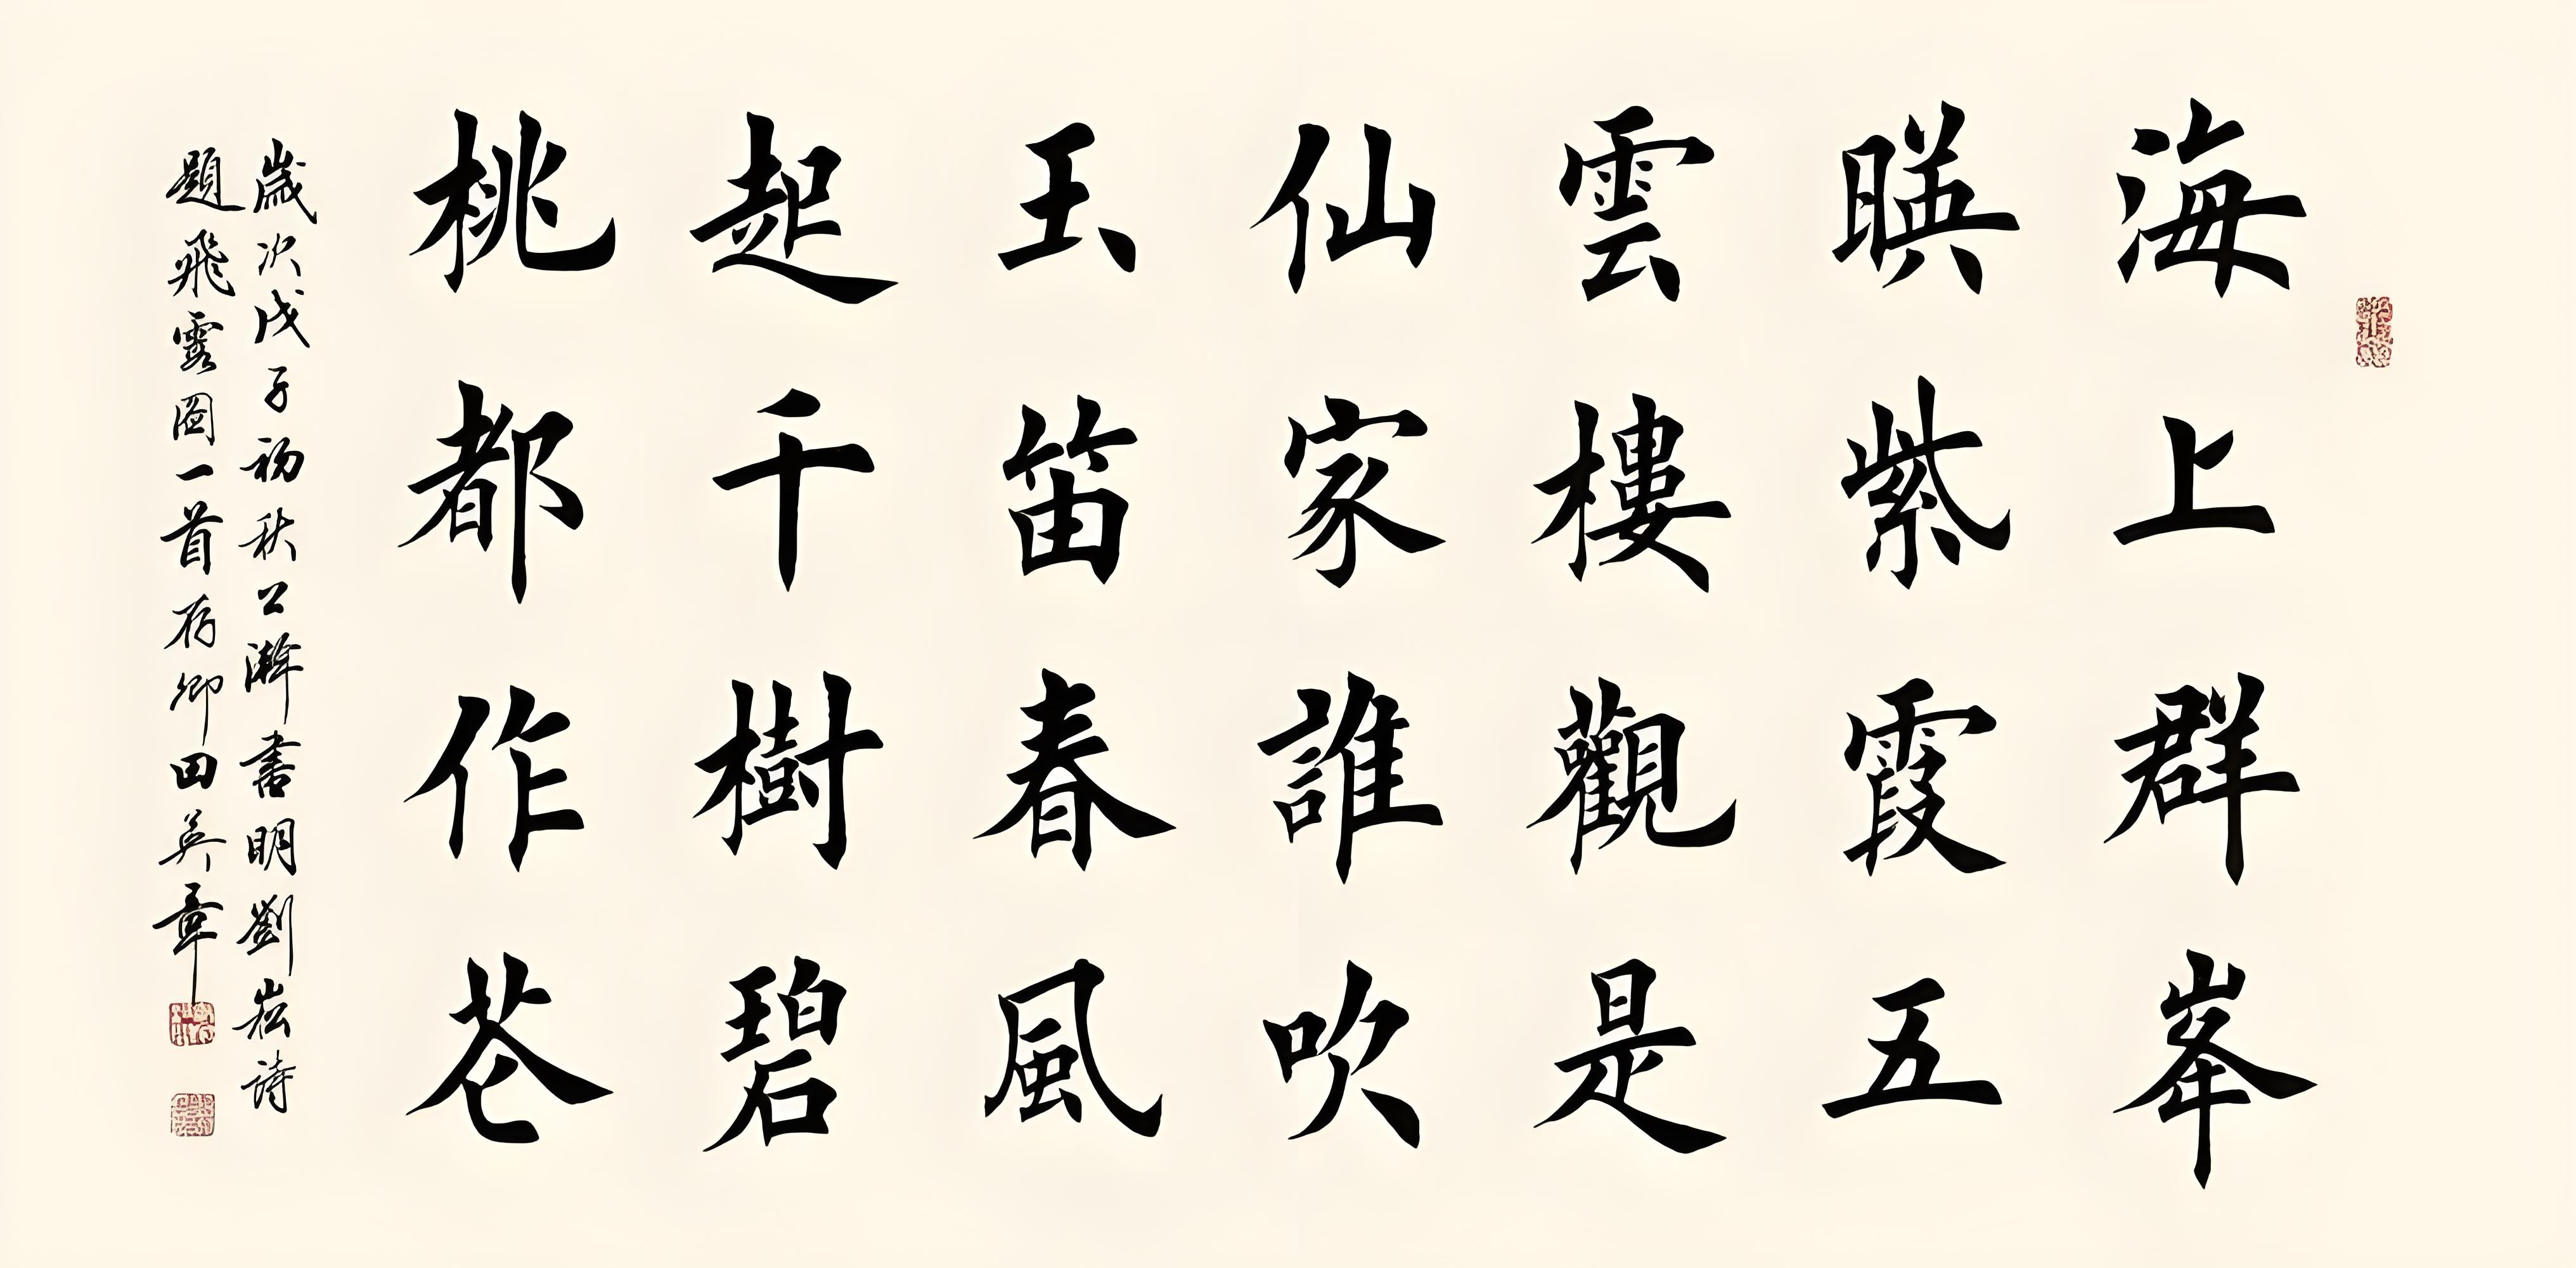 海上群峯
暎紫霞五
雲樓觀是
仙家誰吹
玉笛春風
起千樹碧
桃都作花
歲次戊子初秋上澣書明劉崧詩
題飛霞圖一首存卿田英章